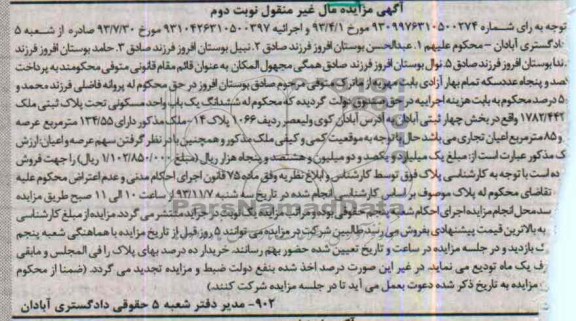 آگهی مزایده مال غیر منقول نوبت دوم
توجه به رای شماره ۹۳۰۹۹۷۶۳۱۰۵۰۰۲۷۴ مورخ ۹۳/۴/۱ و اجرائیه ۹۳۱۰۴۲۶۳۱۰۵۰۰۳۹۷ مورخ ۹۳/۷/۳۰ صادره از شعبه ۵
دادگستری آبادان - محکوم علیهم ۱. عبدالحسن بوستان افروز فرزند صادق ۲. نبیل بوستان افروز فرزند صادق ۳. حامد بوستان افروز فرزند
ندا بوستان افروز فرزند صادق ۵. نوال بوستان افروز فرزند صادق همگی مجهول المکان به عنوان قائم مقام قانونی متوفی محکومند به پرداخت
صد و پنجاه عدد سکه تمام بهار آزادی بابت مهریه از ماترک متوفی مرحوم صادق بوستان افروز در حق محکوم له پروانه فاضلی فرزند محمد و
۵ درصد محکوم به بابت هزینه اجراییه در حق صندوق دولت گردیده که محکوم له ششدانگ یک باب واحد مسکونی تحت پلاک ثبتی ملک
۱۷۸۲/۴۴۲ واقع در بخش چهار ثبتی آبادان به آدرس آبادان کوی ولیعصر ردیف ۱۰۶۶ پلاک ۱۴ - ملک مذکور دارای ۱۳۴/۵۵ مترمربع عرصه
و ۸۵ مترمربع اعیان تجاری می باشد حال با توجه به موقعیت کمی و کیفی ملک مذکور و همچنین با در نظر گرفتن سهم عرصه و اعیان: ارزش
ک مذکور عبارت است از: مبلغ یک میلیارد و یکصد و دو میلیون و هشتصد و پنجاه هزار ریال (مبلغ ۱/۱۰۲/۸۵۰/۰۰۰ ریال) را جهت فروش
ده است با توجه به کارشناسی پلاک فوق توسط کارشناس و ابلاغ نظریه وفق ماده ۷۵ قانون اجرای احکام مدنی و عدم اعتراض محکوم علیه
تقاضای محکوم له پلاک موصوف بر اساس کارشناسی انجام شده در تاریخ سه شنبه ۹۳/۱۱/۷ از ساعت ۱۰ الی ۱۱ صبح طریق مزایده
سد محل انجام مزایده اجرای احکام شعبه پنجم حقوقی بوده و مراتب مزایده یک نوبت در جراید منتشر می گردد مزایده از مبلغ کارشناسی
به بالاترین قیمت پیشنهادی بفروش می رسد طالبین شرکت در مزایده می توانند ۵ روز قبل از تاریخ مزایده با هماهنگی شعبه پنجم
ک بازدید و در جلسه مزایده در ساعت و تاریخ تعیین شده حضور بهم رسانند. خریدار ده درصد بهای پلاک را فی المجلس و مابقی
رف یک ماه تودیع می نماید. در غیر این صورت درصد اخذ شده بنفع دولت ضبط و مزایده تجدید می گردد. (ضمنا از محکوم
مزایده به تاریخ ذکر شده دعوت بعمل می آید تا در جلسه مزایده شرکت کنند)
۹۰۲- مدیر دفتر شعبه ۵ حقوقی دادگستری آبادان
ParsNamadData